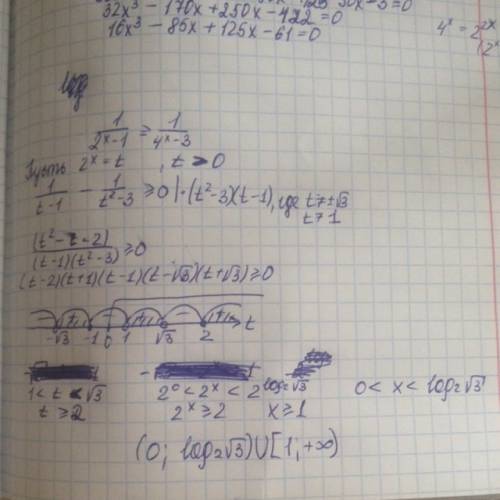 32x³ - 170x + 250x - 422 = 0
16x³ - 85x + 125x - 61 = 0
4ˣ = 2²ˣ
1/(2ˣ-1) ≥ 1/(4ˣ-3)
Пусть 2ˣ = t , t > 0
1/(t-1) - 1/(t²-3) ≥ 0 |·(t²-3)(t-1), где t ≠ ±√3
t ≠ 1
(t²-t-2)/((t-1)(t²-3)) ≥ 0
(t-2)(t+1)(t-1)(t-√3)(t+√3) ≥ 0
-√3 -1 0 1 √3 2 t
1 < t < √3 2⁰ < 2ˣ < 2^(log₂√3) 0 < x < log₂√3
t ≥ 2 2ˣ ≥ 2 x ≥ 1
(0; log₂√3)∪[1; +∞)